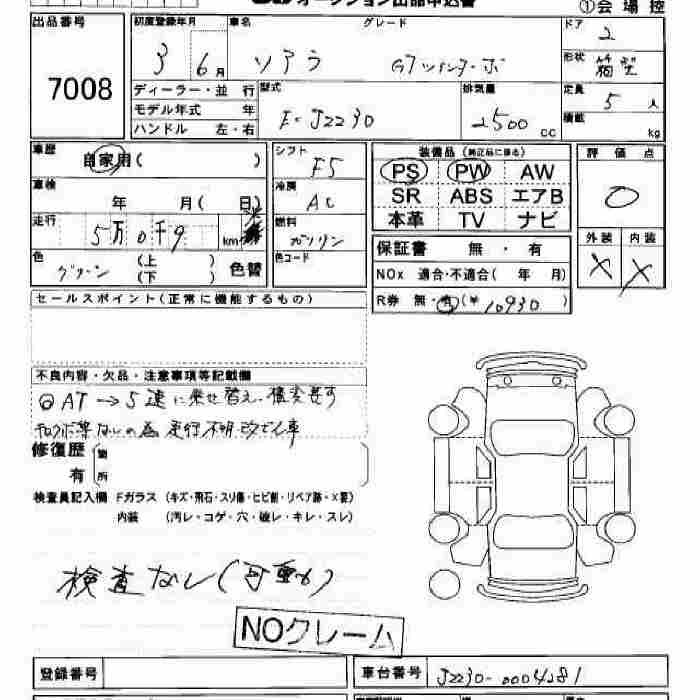 オークション出品申込書
①会場控
出品番号 初度登録年月 車名 グレード ドア
7008 3 6月 ソアラ GTツインターボ 2
形状 箱型
ディーラー・並行 型式 排気量 定員
モデル年式 年 E-JZZ30 2500cc 5人
ハンドル 左・右 積載 kg
車歴 自家用( ) シフト F5 装備品(純正品に限る) 評価点
PS PW AW 0
車検 年 月( 日) 冷房 AC SR ABS エアB
本革 TV ナビ
走行 5万0千9 km 燃料 ガソリン 外装 内装
保証書 無・有 X X
色 グリーン (上 )(下 ) 色替 色コード NOx 適合・不適合( 年 月)
R券 無・有(¥10930)
セールスポイント(正常に機能するもの)
不良内容・欠品・注意事項等記載欄
◎AT→5速に乗せ替え、構変要す
ないの為 走行不明 改ざん車
修復歴 箇所
有
検査員記入欄 Fガラス(キズ・飛石・スリ傷・ヒビ割・リペア跡・X要)
内装 (汚レ・コゲ・穴・破レ・キレ・スレ)
検査なし(可動か)
NOクレーム
登録番号 車台番号 JZZ30-0004281